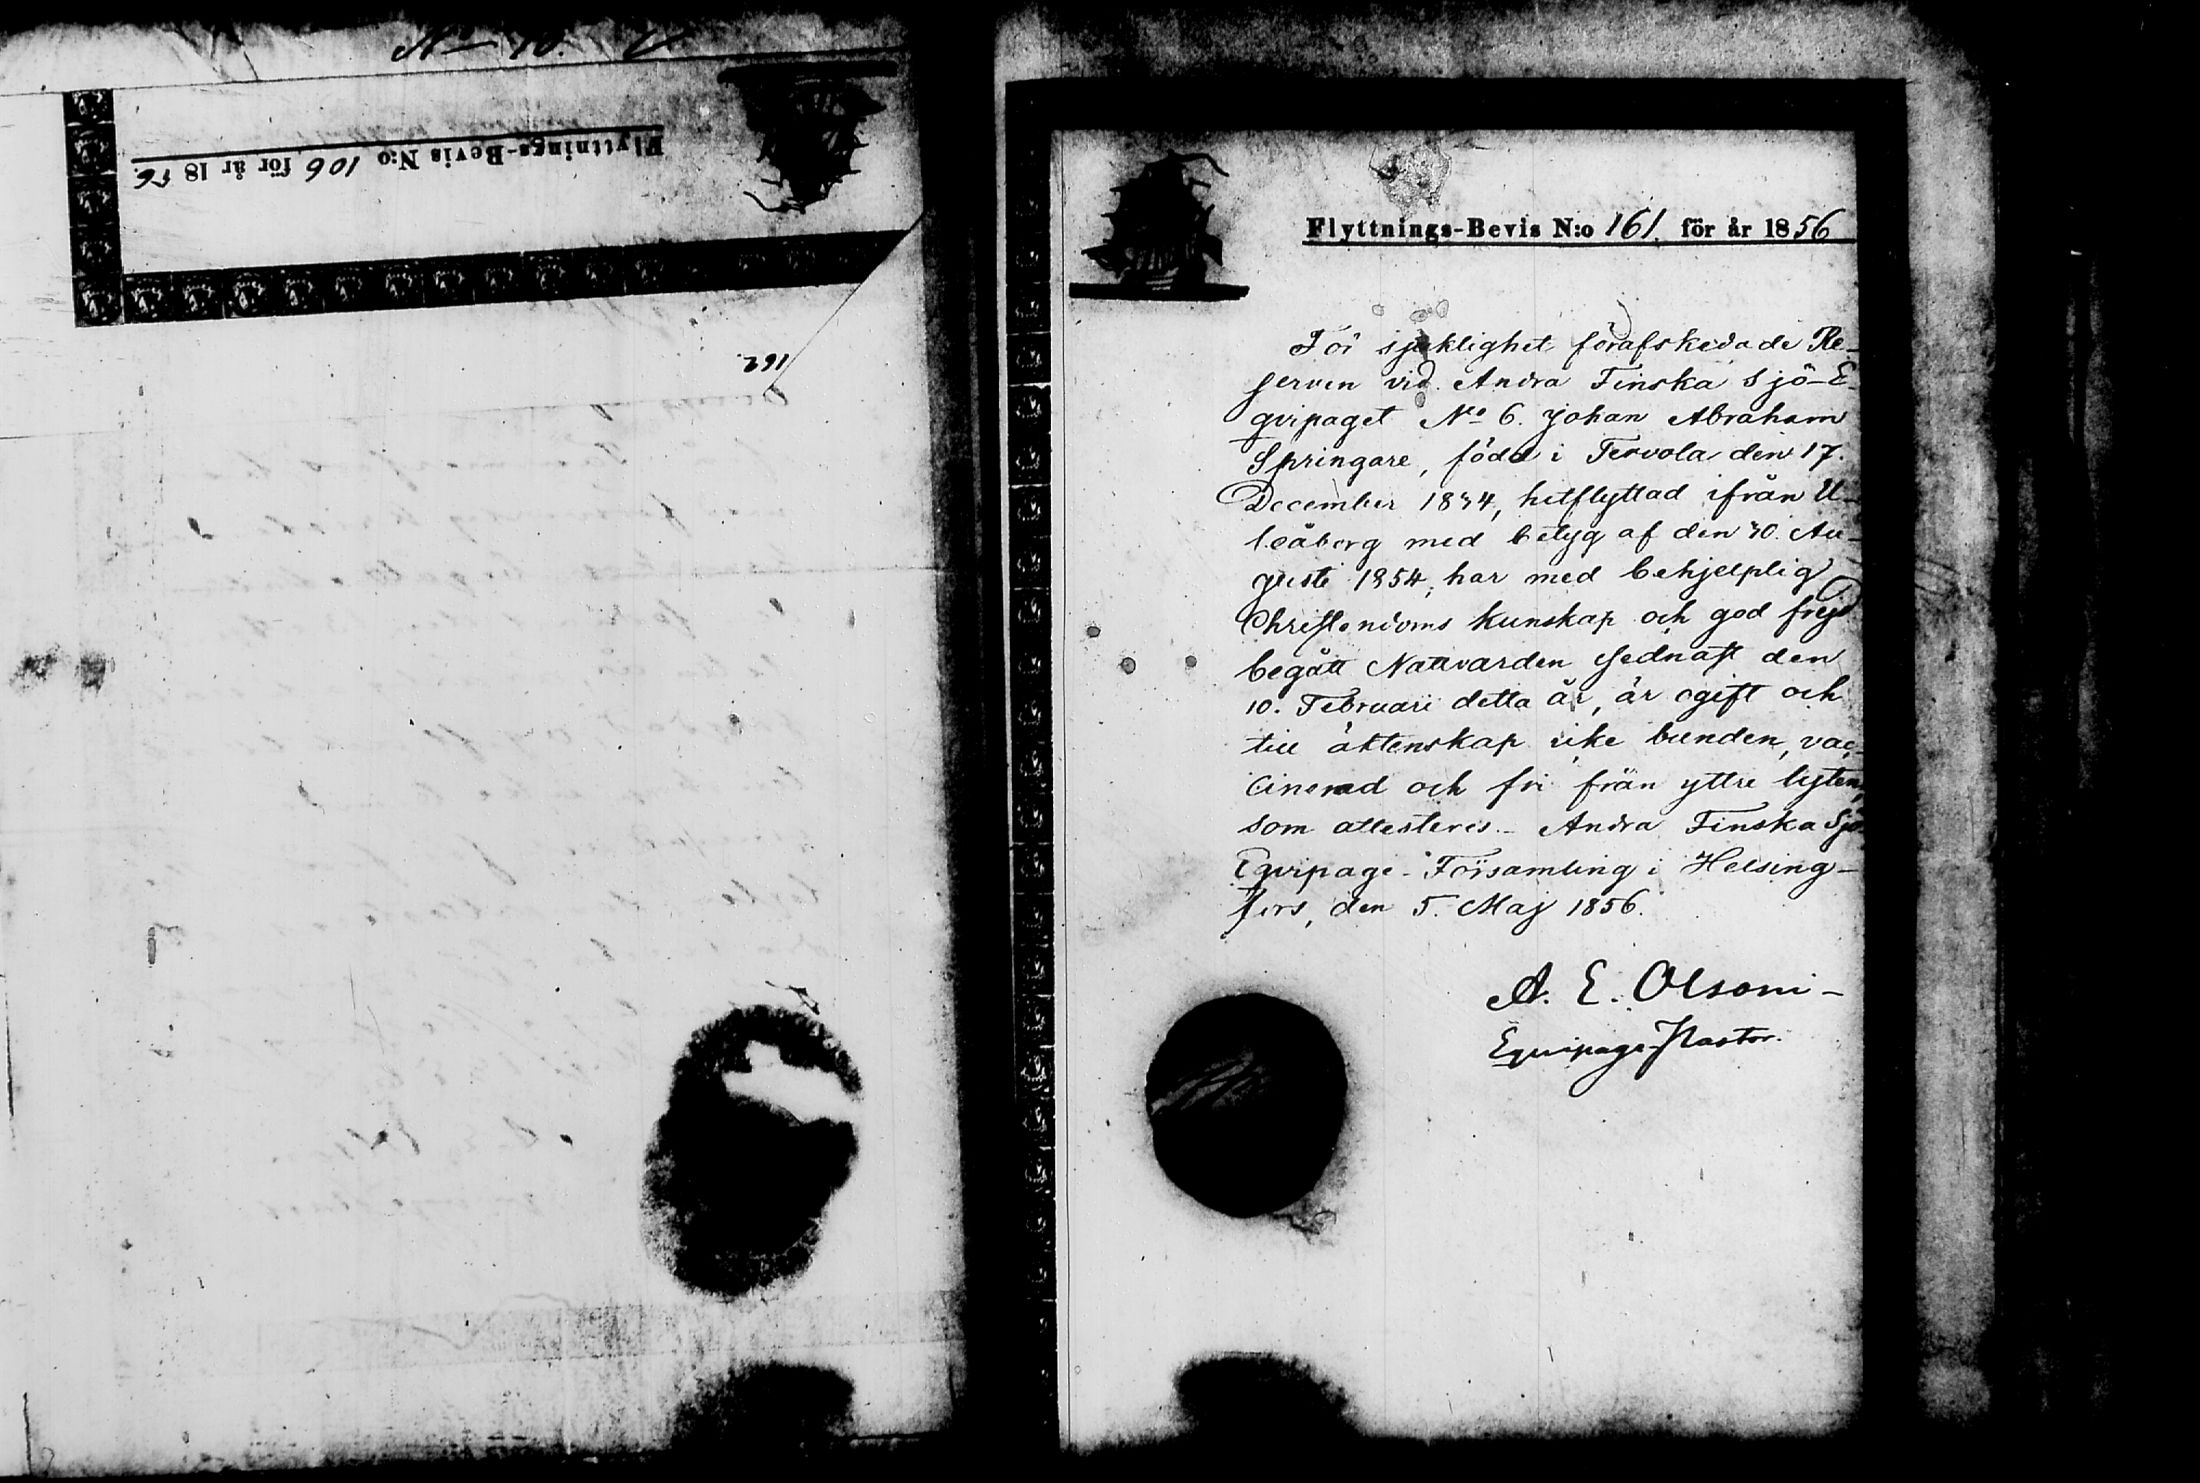 No 10.
Flyttnings-Bevis N:o 106 för år 1856.
162.
Flyttnings-Bevis N:o 161. för år 1856
För sjuklighet förafskedade Re-
serven vid Andra Finska Sjö-E-
qvipaget No 6. Johan Abraham
Springare, född i Tervola den 17.
December 1834, hitflyttad ifrån U-
leåborg med betyg af den 30. Au-
gusti 1854, har med behjelplig
Christendoms kunskap och god frejd
begått Nattvarden sednast den
10. Februari detta år, är ogift och
till äktenskap icke bunden, vac-
cinerad och fri från yttre lyten,
som attesteres. Andra Finska Sjö
Eqvipage-Församling i Helsing-
fors, den 5. Maj 1856.
A. E. Olsoni-
Equipage-Pastor.